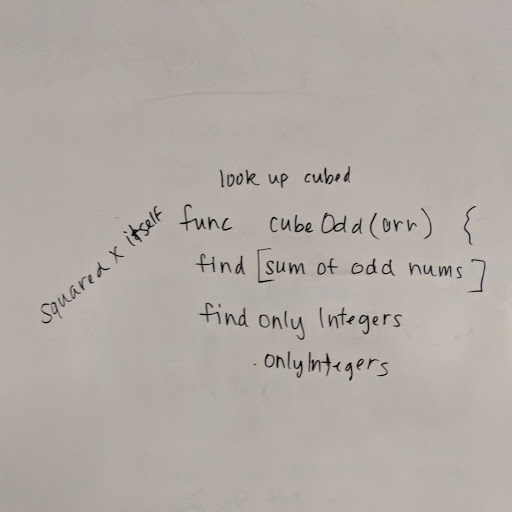 look up cubed
squared x itself
func cubeOdd(arr) {
find [sum of odd nums]
find only Integers
.onlyIntegers